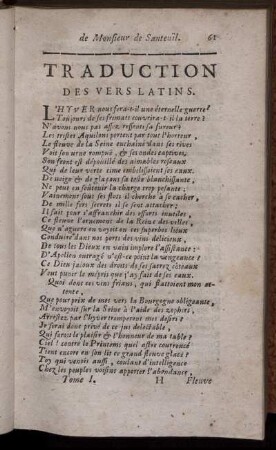 de Monsieur de Santeüil. 61
TRADUCTION
DES VERS LATINS.
L'HYVER nous fera-t-il une éternelle guerre?
Toujours de ses frimats couvrira-t-il la terre?
N'avons nous pas assez ressenti sa fureur?
Les tristes Aquilons portent par tout l'horreur,
Le fleuve de la Seine enchaîné dans ses rives
Voit son urne rompuë, & ses ondes captives,
Son front est dépoüillé des aimables roseaux
Qui de leur verte cime embélissoient ses eaux.
De neige & de glaçons sa teste blanchissante,
Ne peut en soûtenir la charge trop pesante;
Vainement sous ses flots il cherche à se cacher,
De mille fers secrets il se sent attacher;
Il fait pour s'affranchir des efforts inutiles,
Ce fleuve l'ornement de la Reine des villes,
Que n'aguere on voyoit en ses superbes lieux
Conduire dans nos ports des vins delicieux,
De tous les Dieux en vain implore l'assistante;
D'Apollon outragé n'est-ce point la vangeance?
Ce Dieu jaloux des droits de ses sacrez côteaux
Veut punir le mépris que j'ay fait de ses eaux.
Quoi donc ces vins frians, qui flattoient mon attente,
Que pour prix de mes vers la Bourgogne obligeante,
M'envoyoit sur la Seine à l'aide des zephirs,
Arrestez par l'hyver tromperont mes desirs?
Je serai donc privé de ce jus delectable,
Qui feroit le plaisir & l'honneur de ma table?
Ciel! contre le Printemps quel astre courroucé
Tient encore en son lit ce grand fleuve glacé?
Toy qui venois aussi, coulant d'intelligence
Chez les peuples voisins apporter l'abondance,
Tome I. H Fleuve